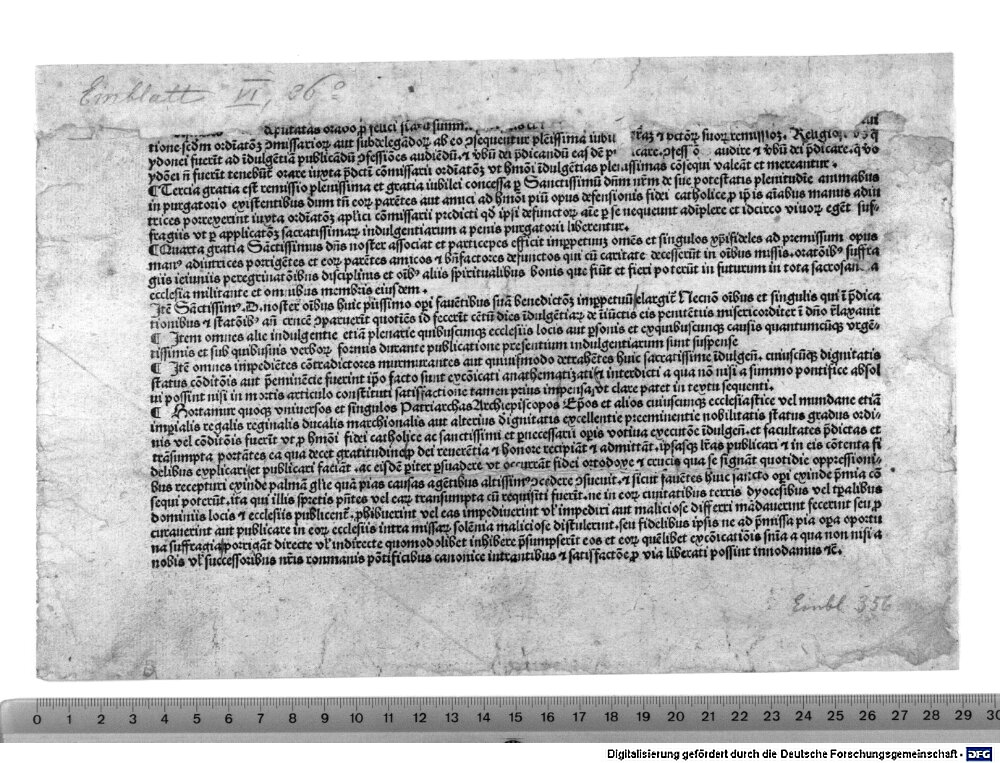 Einblatt VI, 36º
deputatas oraverint
tione sedm ordiatoꝝ ꝯmissarioꝝ aut subdelegadoꝝ ab eo ꝯsequentur plēissima iubil r̄az ⁊ pctoꝝ suoꝝ remissioꝫ. Religio
ydonei fuerīt ad īdulgētiā publicādū ꝯfessiōes audiēdū. ⁊ vbū dei p̄dicandū eas dē audire ⁊ vbū dei p̄dicare. qͥ vo
ydōei nͦ fuerīt tenebūt orare iuxta p̄dcti cōmissarii ordiatoꝫ vt hmōi īdulgētias plenissimas cōsequi valeāt et mereantur.
¶ Tercia gratia est remissio plenissima et gratia iubilei concessa ꝑ Sanctissimū dn̄m nr̄m de sue potestatis plenitudīe animabus
in purgatorio existentibus dum tn̄ eoꝝ parētes aut amici ad hmōi piū opus defensionis fidei catholice ꝓ ip̄is aīabus manus adiu
trices porrexerint iuxta ordiatoꝫ aplici cōmissarii predicti qd ipsi defunctoꝝ aīe ꝑ se nequeunt adiplere et idcirco viuoꝝ egēt suf-
fragiis vt ꝑ applicatoꝫ sacratissimaꝝ indulgentiarum a penis purgatorii liberentur.
¶ Quarta gratia Sāctissimus dn̄s noster associat et participes efficit imppetuuꝫ omēs et singulos xp̄ifideles ad premissum opus
manꝰ adiutrices porrigētes et eoꝝ parētes amicos et bn̄factores defunctos qui cū caritate decesserūt in oībus missis. oratōibꝰ suffra
giis ieiuniis peregrinatōibus disciplinis et oībꝰ aliis spiritualibus bonis que fiūt et fieri poterūt in futurum in tota sacrosancta
ecclesia militante et omnibus membris eiusdem.
Itē Sāctissimꝰ. D. noster oībus huic piissimo opi fauētibus suā benedictoꝫ imppetuū elargit̄. Necnō oībus et singulis qui ī p̄dica
tionibus ⁊ statōibꝰ an̄ crucē ꝯparuerīt quotiēs id fecerīt cētū dies īdulgētiaꝝ de iīūctis eis penitētiis misericorditer ī dn̄o relaxauit
¶ Item omnes alie indulgentie etiā plenarie quibuscunqꝫ ecclesiis locis aut ꝑsonis et exquibuscunqꝫ causis quantumcūqꝫ vrgē-
tissimis et sub quibusuis verboꝝ formis durante publicatione presentium indulgentiarum sunt suspense
¶ Itē omnes impediētes cōtradictores murmurantes aut quiuismodo detrahētes huic sacratissime īdulgen̄. cuiuscūqꝫ dignitatis
status cōditōis aut p̄eminēcie fuerint ip̄o facto sunt excōicati anathematizati ⁊ interdicti a qua nō nisi a summo pontifice absol
ui possint nisi in mortis articulo constituti satisfactione tamen prius impensa, vt clare patet in textu sequenti.
¶ Hortamur quoqꝫ vniuersos et singulos Patriarchas Archiepiscopos Ep̄os et alios cuiuscunqꝫ ecclesiastice vel mundane etiā
impialis regalis reginalis ducalis marchionalis aut alterius dignitatis excellentie preeminentie nobilitatis status gradus ordi-
nis vel cōditōis fuerīt vt ꝓ hmōi fidei catholice ac sanctissimi et pnecessarii opis votiua executōe īdulgen̄. et facultates p̄dictas et
trāsumpta portātes ea qua decet gratitudine ꝓ dei reuerētia ⁊ honore recipiāt ⁊ admittāt. ipsasqꝫ lr̄as publicari ⁊ in eis cōtenta fi
delibus explicari et publicari faciāt. ac eisdē piter psuadere vt occurrāt fidei ortodoxe ⁊ crucis qua se signāt quotidie oppressioni-
bus recepturi exinde palmā glīe quā pias causas agētibus altissimꝰ ꝯcedere ꝯsueuit. ⁊ sicut fauētes huic sancto opi exinde p̄mia cō
sequi poterūt. ita qui illis spretis pn̄tes vel eaꝝ transumpta cū requisiti fuerīt. ne in eoꝝ ciuitatibus terris dyocesibus vel tp̄alibus
dominiis locis ⁊ ecclesiis publicent̄. ꝓhibuerint vel eas impediuerint vl̓ impediri aut maliciose differri mādauerint fecerint seu ꝓ
curauerint aut publicare in eoꝝ ecclesiis intra missaꝝ solēnia maliciose distulerint. seu fidelibus ipsis ne ad p̄missa pia oꝑa oportu
na suffragia porrigāt directe vl̓ indirecte quomodolibet inhibere p̄sumpserīt eos et eoꝝ quēlibet excōicatiōis sn̄ia a qua non nisi a
nobis vl̓ successoribus nr̄is romanis pōtificibus canonice intrantibus ⁊ satisfactōe ꝓ via liberati possint innodamus ⁊c̄.
Einbl. 356
0 1 2 3 4 5 6 7 8 9 10 11 12 13 14 15 16 17 18 19 20 21 22 23 24 25 26 27 28 29 30
Digitalisierung gefördert durch die Deutsche Forschungsgemeinschaft - DFG